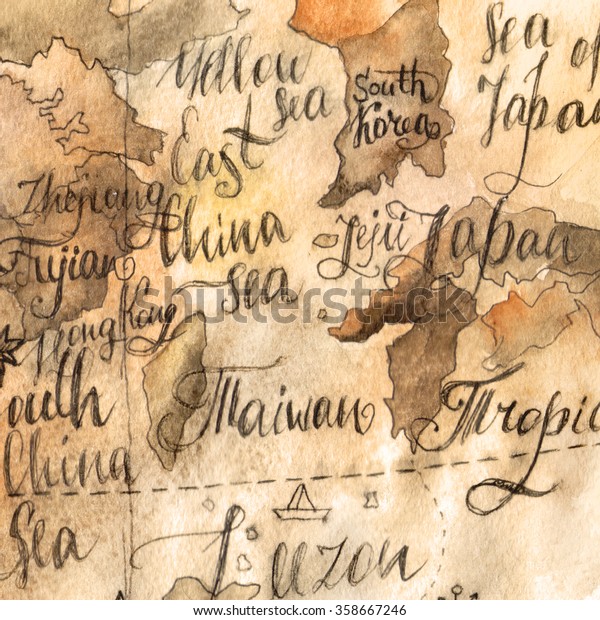 Yellow
Sea
South
Korea
Sea of
Japan
East
China
Sea
Zhejiang
Fujian
Hong Kong
Jeju
Japan
South
China
Sea
Taiwan
Tropic
Luzon
shutterstock
IMAGE ID: 358667246
www.shutterstock.com